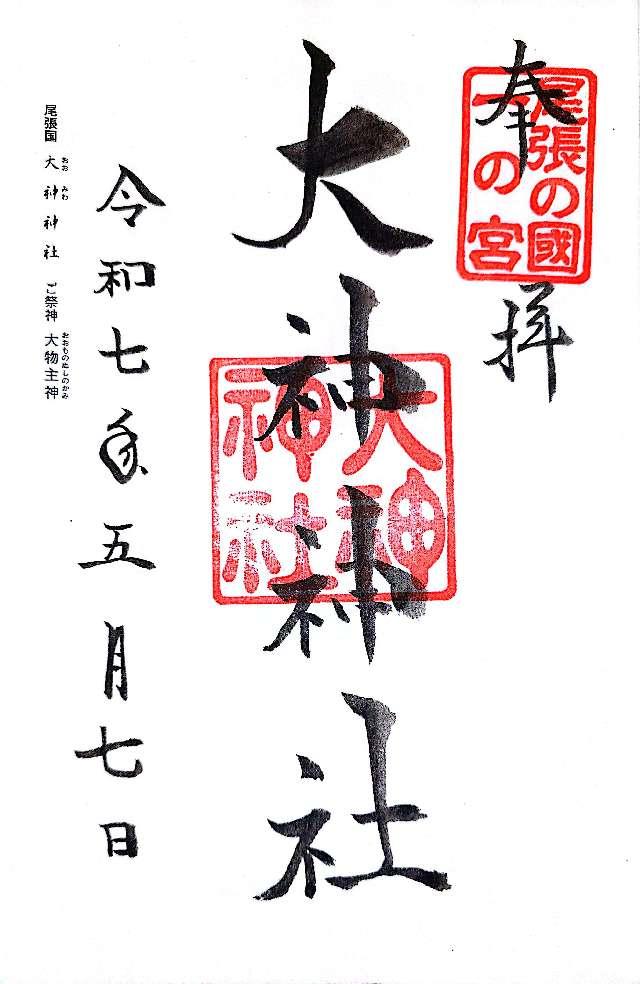 奉拝
尾張の國
一の宮
大神神社
大神
神社
令和七年五月七日
尾張国 大神神社 ご祭神 大物主神
おお みわ
おおものぬしのかみ